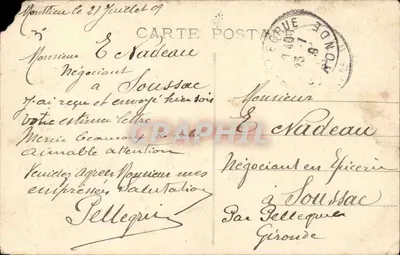 Montlieu le 21 Juillet 09
CARTE POSTALE
Monsieur E Nadeau
Négociant
à Soussac
J'ai reçu et envoyé hier soir
votre estimée lettre
Merci beaucoup de
aimable attention
Veuillez agréer Monsieur mes
empressées salutation
Pellegrin
Monsieur
E Nadeau
Négociant en Epicerie
à Soussac
Par Pellegrue
Gironde
PELLEGRUE
GIRONDE
CPAPHIL.com